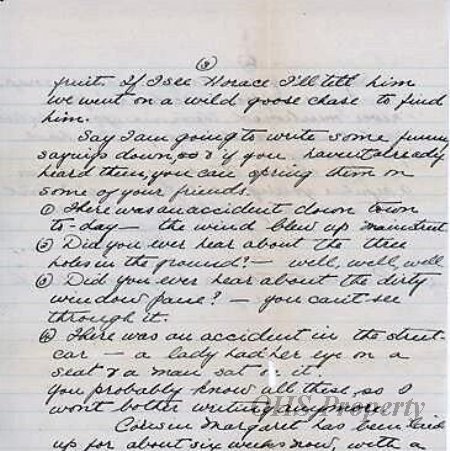 ③
fruit. If I see Horace I'll tell him
we went on a wild goose chase to find
him.
Say I am going to write some funny
sayings down, so & if you haven't already
heard them, you can spring them on
some of your friends.
① There was an accident down town
to-day — the wind blew up mainstreet
② Did you ever hear about the three
holes in the ground? — well, well, well
③ Did you ever hear about the dirty
window pane? — you can't see
through it.
④ There was an accident in the street-
car — a lady had her eye on a
seat & a man sat on it.
you probably know all these, so I
won't bother writing anymore
Cousin Margaret has been laid
up for about six weeks now, with a
OHS Property